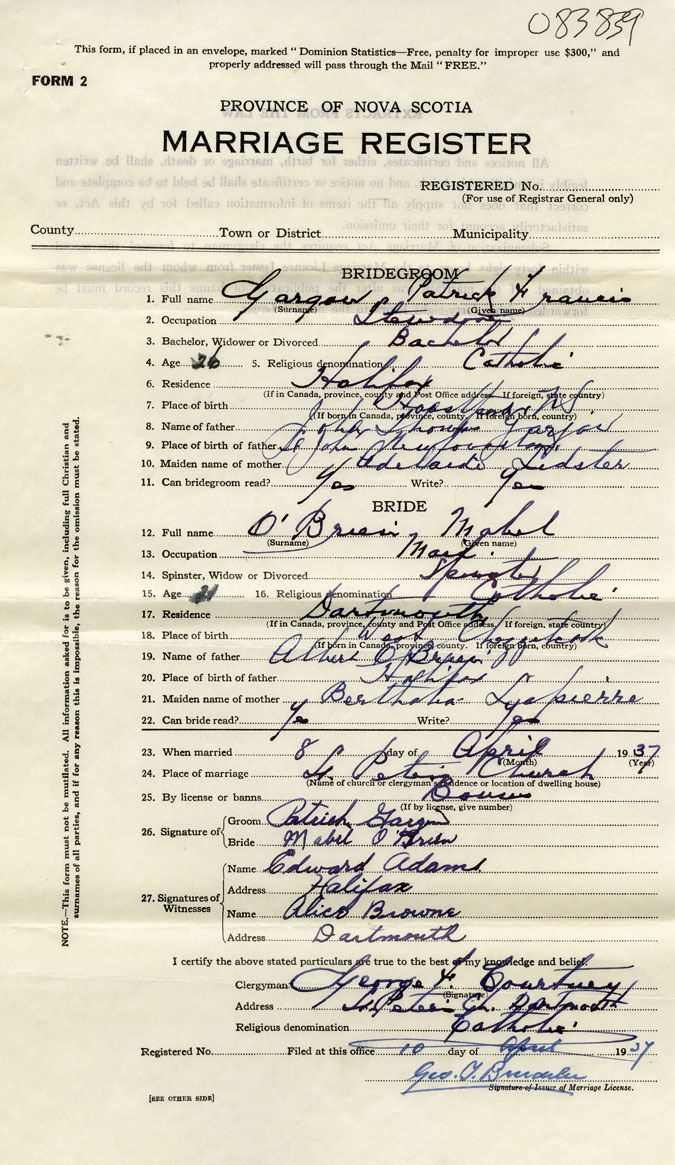 083839
This form, if placed in an envelope, marked "Dominion Statistics—Free, penalty for improper use $300," and
properly addressed will pass through the Mail "FREE."
FORM 2
PROVINCE OF NOVA SCOTIA
MARRIAGE REGISTER
REGISTERED No.
(For use of Registrar General only)
County Town or District Municipality
BRIDEGROOM
1. Full name Gargan Patrick Francis
(Surname) (Given name)
2. Occupation
3. Bachelor, Widower or Divorced Bachelor
4. Age 26 5. Religious denomination Catholic
6. Residence Halifax
(If in Canada, province, county and Post Office address. If foreign, state country)
7. Place of birth N.S.
(If born in Canada, province, county. If foreign born, country)
8. Name of father John Thomas Gargan
9. Place of birth of father St John's Newfoundland
10. Maiden name of mother Adelaide
11. Can bridegroom read? Yes Write? Yes
BRIDE
12. Full name O'Brien Mabel
(Surname) (Given name)
13. Occupation Maid
14. Spinster, Widow or Divorced Spinster
15. Age 21 16. Religious denomination Catholic
17. Residence Dartmouth
(If in Canada, province, county and Post Office address. If foreign, state country)
18. Place of birth West Chezzetcook
(If born in Canada, province county. If foreign born, country)
19. Name of father Albert O'Brien
20. Place of birth of father Halifax
21. Maiden name of mother Lapierre
22. Can bride read? Yes Write? Yes
23. When married 8 day of April 1937
(Month) (Year)
24. Place of marriage St. Peter's Church
(Name of church or clergyman's residence or location of dwelling house)
25. By license or banns Banns
(If by license, give number)
26. Signature of Groom Patrick Gargan
Bride Mabel O'Brien
27. Signatures of Witnesses Name Edward Adams
Address Halifax
Name Alice Browne
Address Dartmouth
I certify the above stated particulars are true to the best of my knowledge and belief.
Clergyman George F. Courtney
(Signature)
Address St. Peter's Ch. Dartmouth
Religious denomination Catholic
Registered No. Filed at this office 10 day of April 1937
Geo. T.
Signature of Issuer of Marriage License.
[SEE OTHER SIDE]
NOTE.—This form must not be mutilated. All information asked for is to be given, including full Christian and
surnames of all parties, and if for any reason this is impossible, the reason for the omission must be stated.